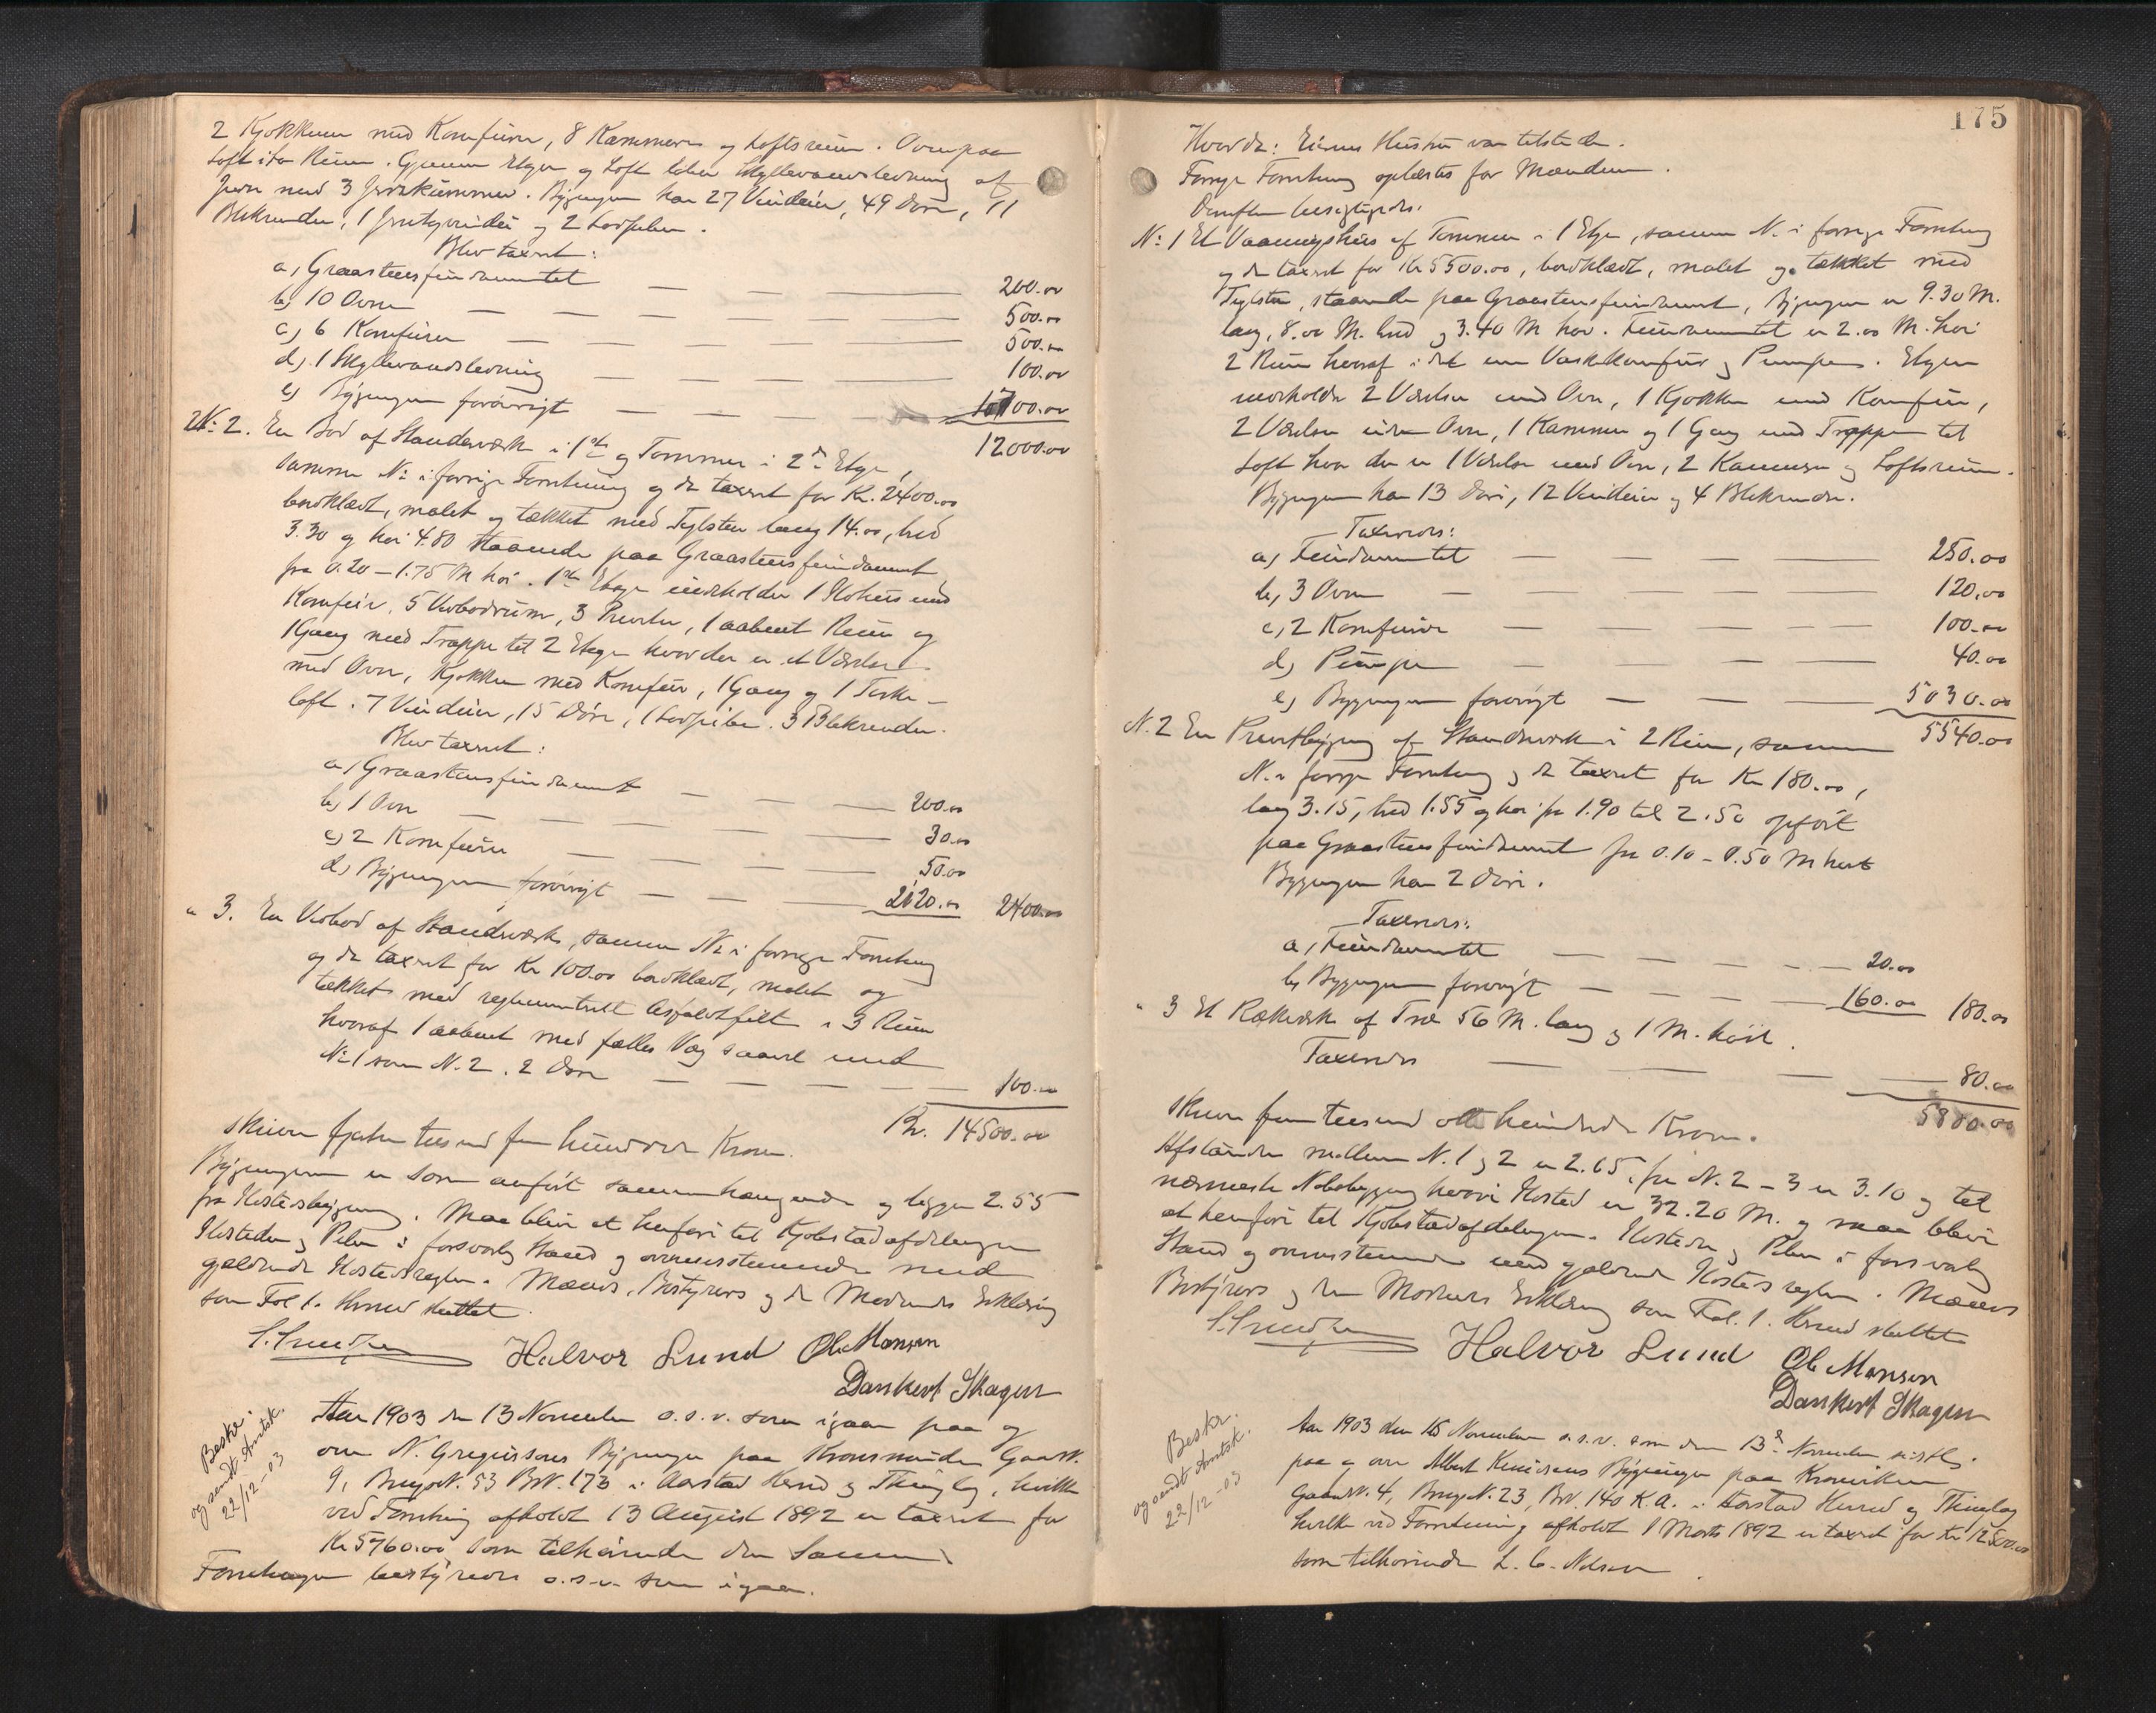 2 Kjøkkener med Komfurer, 8 Kammere og Loftsrum. Ovenpaa
Loft i to Rum. Gjennem Etager og Loft leder Skyllevandsledning af
Jern med 3 Jernkummer. Bygningen har 27 Vinduer, 49 Døre, 11
Blikrender, 1 og 2 Lodpiber.
Blev taxeret:
a, Graastensfundamentet — — 200.00
b, 10 Ovne — — — — 500.00
c, 6 Komfurer — — — 500.00
d, 1 Skyllevandsledning — — — 100.00
e, Bygningen forøvrigt — — — 10700.00
12000.00
N: 2. En Bod af Standerværk i 1ste og Tømmer i 2den Etage,
samme N: i forrige Forretning og da taxeret for Kr. 2400.00
bordklædt, malet og tækket med Teglsten lang 14.00, bred
3.30 og høi 4.80 staaende paa Graastensfundament
fra 0.20 – 1.75 M høi. 1ste Etage indeholder 1 med
Komfur, 5 Vedbodrum, 3 Priveter, 1 aabent Rum og
1 Gang med Trappe til 2 Etage hvor der er et Værelse
med Ovn, Kjøkken med Komfur, 1 Gang og 1 Tørke-
loft. 7 Vinduer, 15 Døre, 1 Lodpibe. 3 Blikrender.
Blev taxeret:
a, Graastensfundament — — — 200.00
b, 1 Ovn — — — — 30.00
c, 2 Komfurer — — — — 50.00
d, Bygningen forøvrigt — — — 2120.00 2400.00
" 3. En Vedbod af Standerværk, samme N: i forrige Forretning
og da taxeret for Kr 100.00 bordklædt, malet og
tækket med reglementeret Asfaltfilt i 3 Rum
hvoraf 1 aabent med fælles Væg saavel med
N: 1 som N. 2. 2 Døre — — — — — 100.00
Kr. 14500.00
skriver fjorten tusend fem hundrede Kroner.
Bygningerne er som anført sammenhængende og ligger 2.55
fra Ildstedsbygning. Maa blive at henføre til Kjøbstadafdelingen
Ildsteder og Piber i forsvarlig Stand og overensstemmende med
gjældende Ildstedsregler. Mænds, Bestyrers og de Mødendes Erklæring
som Fol 1. Hermed sluttet.
Halvor Lund Ole Monsen
Dankert Skagen
Beskr.
og sendt Amtsk.
22/12-03
Aar 1903 den 13 November o.s.v. som igaar paa og
over N. Gregersens Bygninger paa Kronsminden Gaards N.
9, Brugs N. 53 Br N. 173 i Aarstad Herred og Thinglag, hvilke
ved Forretning afholdt 13 August 1892 er taxeret for
Kr 5760.00 som tilhørende den Samme.
Forretningen bestyredes o.s.v. som igaar.
175
Hvorda: Eierens Hustru var tilstede.
Forrige Forretning oplæstes for Mændene.
Derefter besigtigedes:
N: 1 Et Vaaningshus af Tømmer i 1 Etage, samme N. i forrige Forretning
og da taxeret for Kr 5500.00, bordklædt, malet og tækket med
Teglsten, staaende paa Graastensfundament, Bygningen er 9.30 M.
lang, 8.00 M. bred og 3.40 M høi. Fundamentet er 2.00 M. høi
2 Rum hvoraf i det ene Vaskekomfur og Pumpe. Etagen
indeholder 2 Værelser med Ovn, 1 Kjøkken med Komfur,
2 Værelser uden Ovn, 1 Kammer og 1 Gang med Trappe til
Loft hvor der er 1 Værelse med Ovn, 2 Kammere og Loftsrum.
Bygningen har 13 Døre, 12 Vinduer og 4 Blikrender.
Taxeredes:
a, Fundamentet — — — 250.00
b, 3 Ovne — — — — 120.00
c, 2 Komfurer — — — — 100.00
d, Pumpen — — — — 40.00
e, Bygningen forøvrigt — — — 5030.00
5540.00
N. 2 En Privetbygning af Standerværk i 2 Rum, samme
N. i forrige Forretning og da taxeret for Kr 180.00,
lang 3.15, bred 1.55 og høi fra 1.90 til 2.50 opført
paa Graastensfundament fra 0.10 – 0.50 M høit
Bygningen har 2 Døre.
Taxeredes:
a, Fundamentet — — — — 20.00
b, Bygningen forøvrigt — — — — 160.00 180.00
" 3 Et Rækværk af Træ 56 M. lang og 1 M. høit.
Taxeredes — — — — 80.00
5800.00
skriver fem tusend otte hundrede Kroner.
Afstanden mellem N. 1 og 2 er 2.65, fra N. 2 – 3 er 3.10 og til
nærmeste Nabobygning hvori Ildsted er 32.20 M. og maa blive
at henføre til Kjøbstadafdelingen. Ildsteder og Piber i forsvarlig
Stand og overensstemmende med gjældende Ildstedsregler. Mænds
Bestyrers og den Mødendes Erklæring som Fol. 1. Hermed sluttet
Halvor Lund Ole Monsen
Dankert Skagen
Beskr.
og sendt Amtsk.
22/12-03
Aar 1903 den 16 November o.s.v. som den 13de November sidstl.
paa og over Albert Knudsens Bygninger paa Kronviken
Gaards N. 4, Brugs N. 23, Br N. 140 K.A. i Aarstad Herred og Thinglag
hvilke ved Forretning afholdt 1 Marts 1892 er taxeret for Kr 12500.00
som tilhørende L. C. Nilsen.